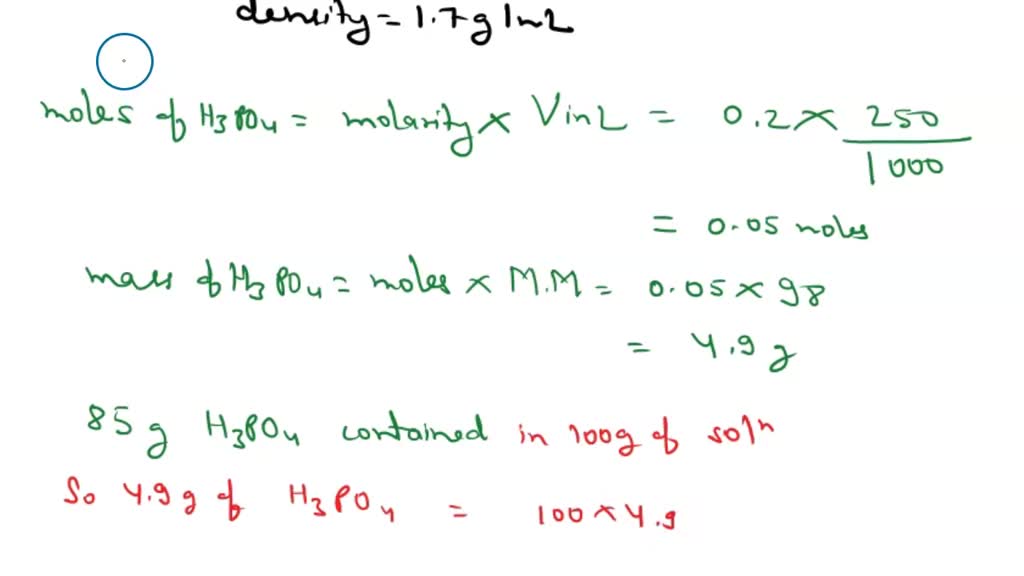 density = 1.7g/mL
moles of H3PO4 = molarity x V in L = 0.2 x 250/1000
= 0.05 moles
mass of H3PO4 = moles x M.M = 0.05 x 98
= 4.9 g
85 g H3PO4 contained in 100g of soln
So 4.9 g of H3PO4 = 100 x 4.9